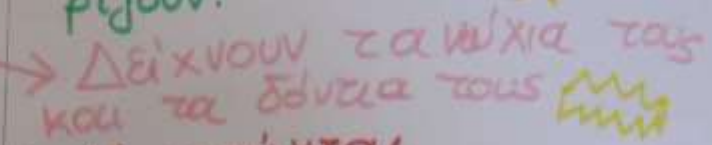 → Δείχνουν τα νύχια τους
και τα δόντια τους